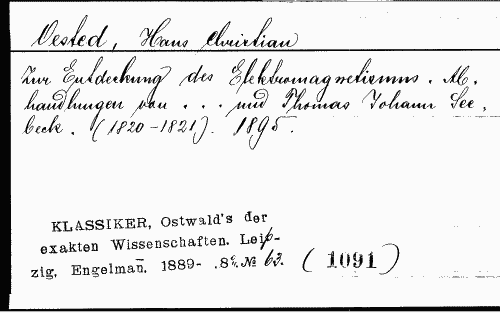 Oested, Hans Christian
Zur Entdeckung des Elektromagnetismus. Ab.
handlungen von ... und Thomas Johann See.
beck. (1820-1821). 1895.
KLASSIKER, Ostwald's der
exakten Wissenschaften. Leip-
zig, Engelman̄. 1889- .8° № 63. (1091)